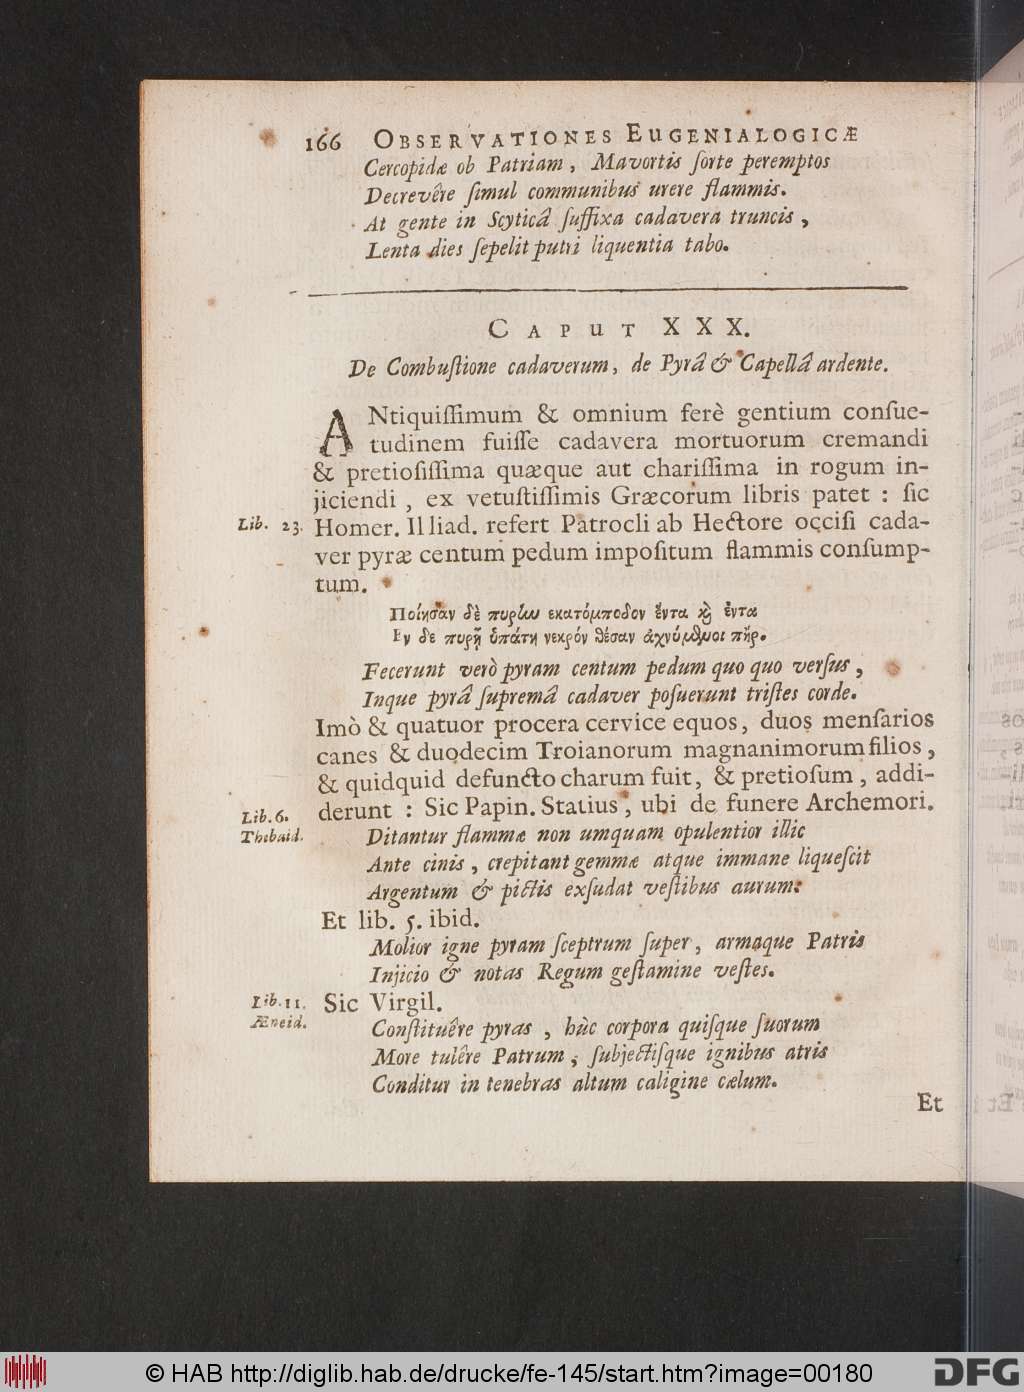 166 OBSERVATIONES EUGENIALOGICÆ
Cercopidæ ob Patriam, Mavortis ſorte peremptos
Decrevêre ſimul communibus urere flammis.
At gente in Scyticâ ſuffixa cadavera truncis,
Lenta dies ſepelit putri liquentia tabo.
CAPUT XXX.
De Combuſtione cadaverum, de Pyrâ & Capellâ ardente.
ANtiquiſſimum & omnium ferè gentium conſue-
tudinem fuiſſe cadavera mortuorum cremandi
& pretioſiſſima quæque aut chariſſima in rogum in-
jiciendi, ex vetuſtiſſimis Græcorum libris patet : ſic
Lib. 23. Homer. Il liad. refert Patrocli ab Hectore occiſi cada-
ver pyræ centum pedum impoſitum flammis conſump-
tum.
Ποίησαν δὲ πυρὴν εκατόμποδον ἔντα καὶ ἔντα
Εν δε πυρῇ ὑπάτη νεκρόν θέσαν ἀχνύμενοι πῆρ.
Fecerunt verò pyram centum pedum quo quo verſus,
Inque pyrâ ſupremâ cadaver poſuerunt triſtes corde.
Imò & quatuor procera cervice equos, duos menſarios
canes & duodecim Troianorum magnanimorum filios,
& quidquid defuncto charum fuit, & pretioſum, addi-
derunt : Sic Papin. Statius, ubi de funere Archemori.
Lib. 6.
Thebaid.
Ditantur flammæ non umquam opulentior illic
Ante cinis, crepitant gemmæ atque immane liqueſcit
Argentum & pictis exſudat veſtibus aurum:
Et lib. 5. ibid.
Molior igne pyram ſceptrum ſuper, armaque Patris
Injicio & notas Regum geſtamine veſtes.
Lib. 11.
Æneid.
Sic Virgil.
Conſtituêre pyras, hùc corpora quiſque ſuorum
More tulêre Patrum, ſubjectiſque ignibus atris
Conditur in tenebras altum caligine cælum.
Et
© HAB http://diglib.hab.de/drucke/fe-145/start.htm?image=00180
DFG